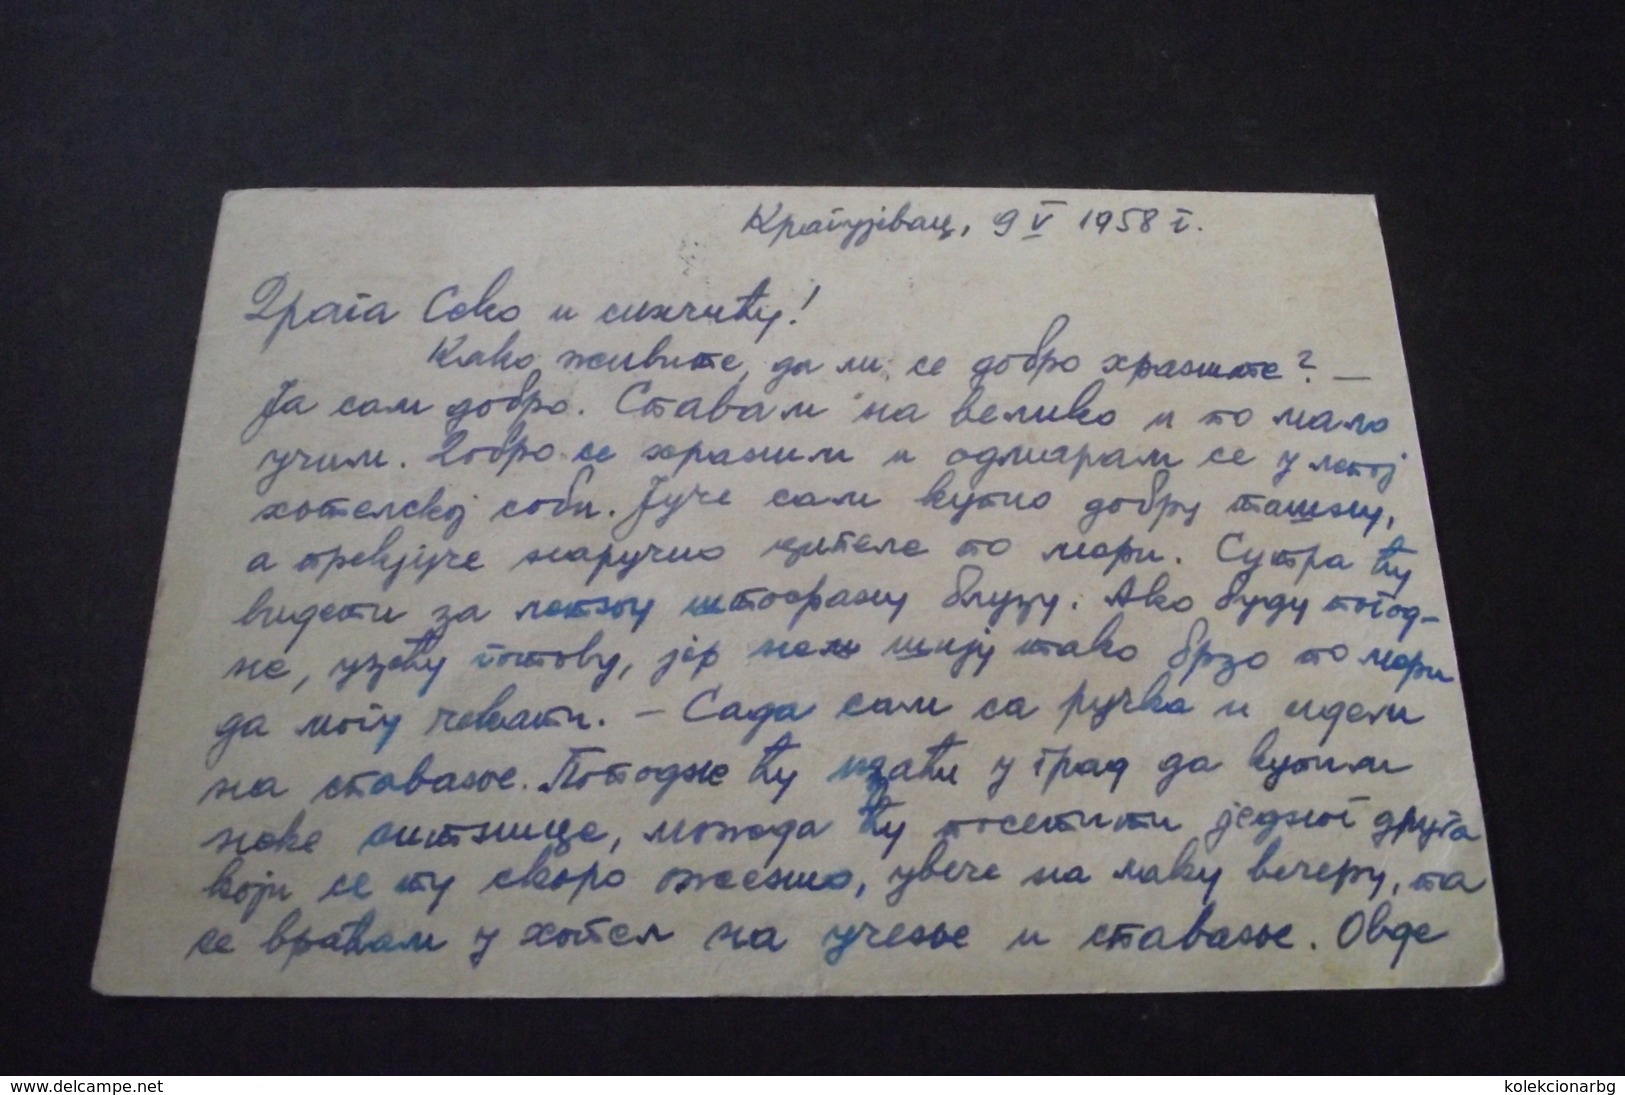 Крагујевац, 9 V 1958 г.
Драга Секо и синчићу!
Како живите, да ли се добро храните? —
Ја сам добро. Спавам на велико и по мало
учим. Добро се храним и одмарам се у лепој
хотелској соби. Јуче сам купио добру ташну,
а прекјуче наручио ципеле по мери. Сутра ћу
видети за летњу штофану блузу. Ако буду погод-
не, узећу готову, јер не шију тако брзо по мери
да могу чекати. — Сада сам са ручка и идем
на спавање. Потодње ћу изаћи у град да купим
неке ситнице, можда ћу посетити једног друга
који се ту скоро оженио, увече на лаку вечеру, па
се враћам у хотел на учење и спавање. Овде
www.delcampe.net
kolekcionarbg